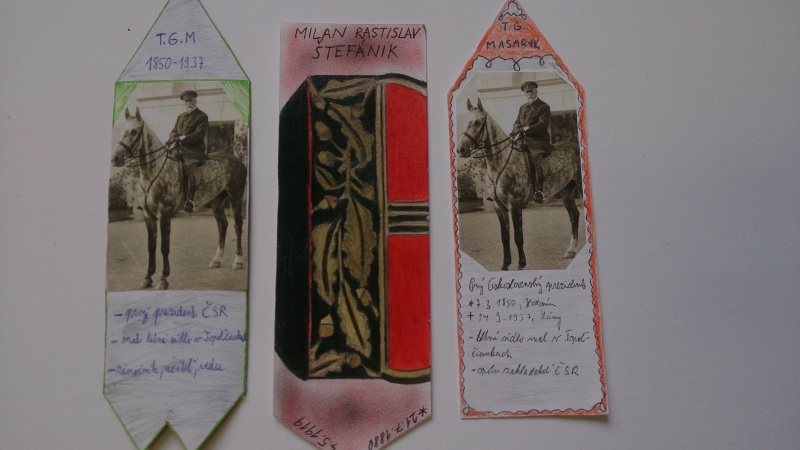 T.G.M
1850-1937
- prvý prezident ČSR
- mal letné sídlo v Topoľčiankach
MILAN RASTISLAV
ŠTEFÁNIK
*21.7.1880
4.5.1919
T.G
MASARYK
Prvý Československý prezident
*7.3.1850, Hodonín
+ 14.9.1937, Lány
- letné sídlo mal v Topoľ-
čiankach
ČSR